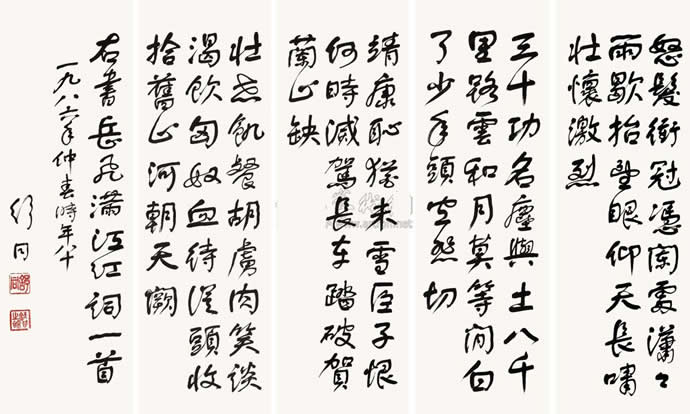 怒髮衝冠憑闌處瀟々
雨歇抬望眼仰天長嘯
壯懷激烈
三十功名塵與土八千
里路雲和月莫等閒白
了少年頭空悲切
靖康恥猶未雪臣子恨
何時滅駕長車踏破賀
蘭山缺
壯志飢餐胡虜肉笑談
渴飲匈奴血待從頭收
拾舊山河朝天闕
右書岳飛滿江紅詞一首
一九八六年仲春時年八十
舒同